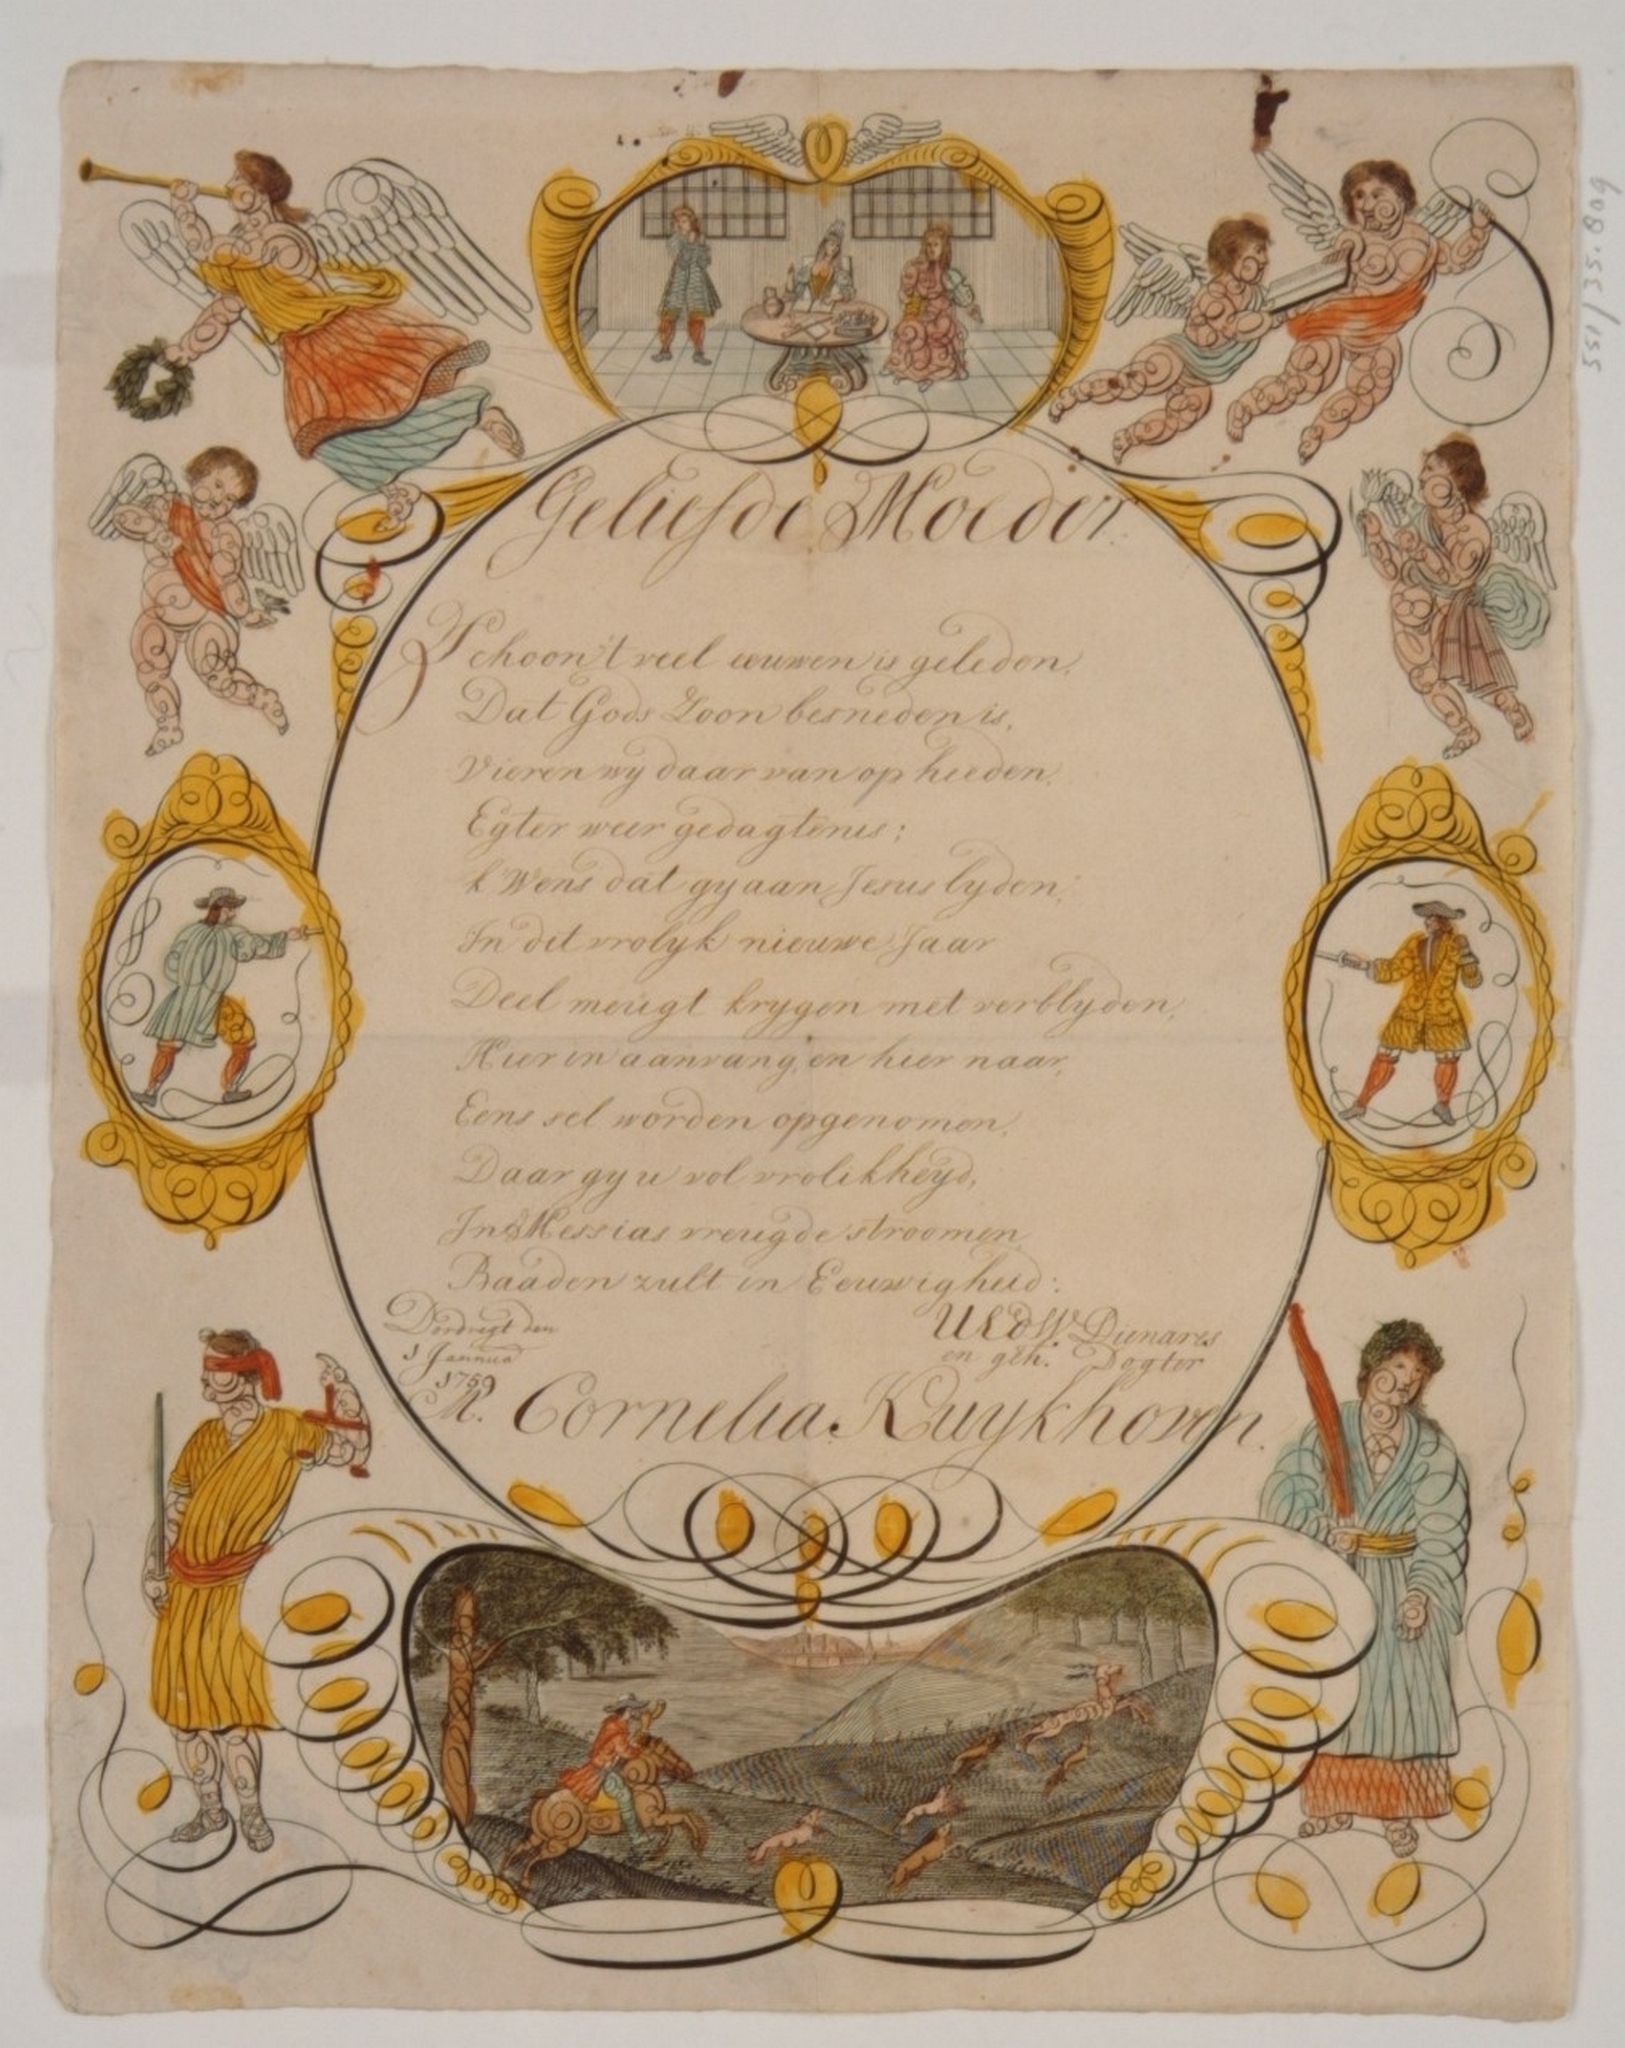 Geliefde Moeder.
Schoon 't veel eeuwen is geleden,
Dat Gods Zoon besneden is,
Vieren wy daar van op heeden,
Egter weer gedagtenis;
k' Wens dat gy aan Jesus lyden,
In dit vrolyk nieuwe Jaar
Deel meugt krygen met verblyden,
Hier in aanvang, en hier naar,
Eens sel worden opgenomen,
Daar gy u vol vrolikheyd,
In Messias vreugde stroomen
Baaden zult in Eeuwigheid:
Dordregt den
1 Jannua
1759
UEdW. Dienares
en geh: Dogter
M. Cornelia Kuykhoven.
551/35.809